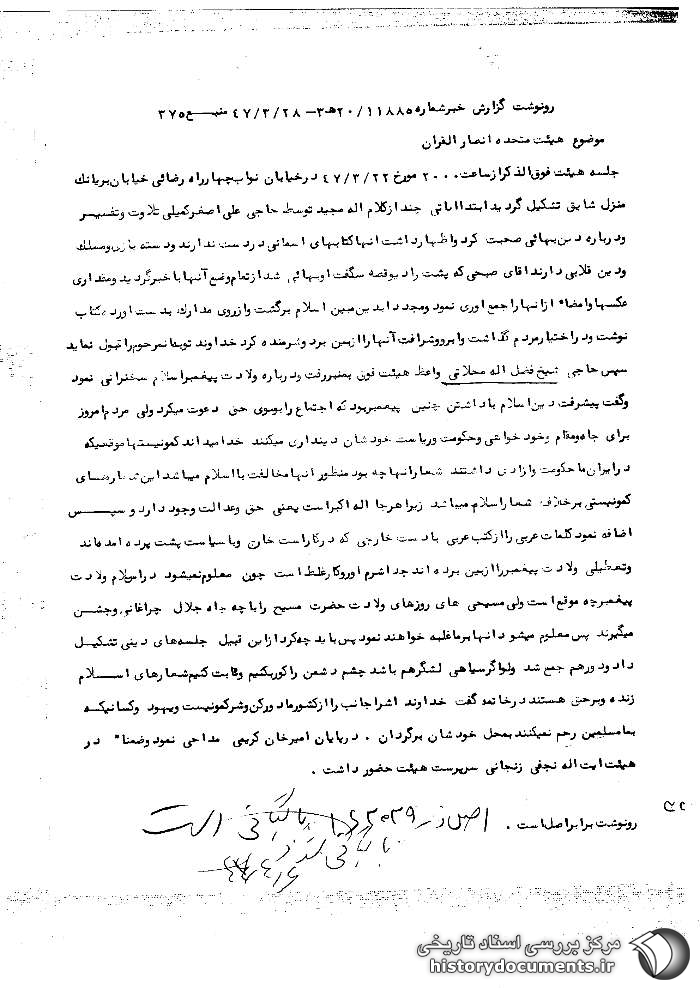 رونوشت گزارش خبر شماره ۲۰/۱۱۸۸۵ هـ ۳ – ۴۷/۳/۲۸ منبع ۳۷۵
موضوع هیئت متحده انصار القران
جلسه هیئت فوق الذکر از ساعت ۲۰۰۰ مورخ ۴۷/۳/۲۲ در خیابان نواب چهارراه رضائی خیابان بریانک
منزل شایق تشکیل گردید ابتدا ایاتی چند از کلام اله مجید توسط حاجی علی اصغر کمیلی تلاوت و تفسیر
و درباره دین بهائی صحبت کرد و اظهار داشت انها کتابهای اسمانی در دست ندارند و دسته بازی و مسلک
و دین قلابی دارند اقای صبحی که پشت رادیو قصه میگفت او بهائی شد از تمام وضع آنها با خبر گردید و مقداری
عکسها و امضاء از انها را جمع اوری نمود و مجددا بدین مبین اسلام برگشت و از روی مدارک بدست اورده کتاب
نوشت و در اختیار مردم گذاشت و ابرو و شرافت آنها را از بین برد و شرمنده کرد خداوند توبه ان مرحوم را قبول نماید
سپس حاجی شیخ فضل اله محلاتی واعظ هیئت فوق بمنبر رفت و درباره ولادت پیغمبر اسلام سخنرانی نمود
و گفت پیشرفت دین اسلام با داشتن چنین پیغمبر بود که اجتماع را بسوی حق دعوت میکرد ولی مردم امروز
برای جاه و مقام و خود خواهی و حکومت و ریاست خودشان دینداری میکنند خدا میداند کمونیستها موقعیکه
در ایران ما حکومت و ازادی داشتند شعار انها چه بود منظور انها مخالفت با اسلام میباشد این شعارهای
کمونیستی برخلاف شعار اسلام میباشد زیرا هرجا اله اکبر است یعنی حق و عدالت وجود دارد و سپس
اضافه نمود کلمات عربی را از کتب عربی با دست خارجی که در کار است خارج و با سیاست پشت پرده امده‌اند
و تعطیلی ولادت پیغمبر را از بین برده‌اند چه کار غلط است چون معلوم نمیشود در اسلام ولادت
پیغمبر چه موقع است ولی مسیحی های روزهای ولادت حضرت مسیح را با چه جاه جلال چراغانی و جشن
میگیرند پس معلوم میشود انها بر ما غلبه خواهند نمود پس باید چه کرد از این قبیل جلسه‌های دینی تشکیل
داد و دورهم جمع شد ولو اگر سیاهی لشگر هم باشد چشم دشمن را کور بکنیم و ثابت کنیم شعارهای اسلام
زنده و برحق هستند در خاتمه گفت خداوند اشر اجانب را از کشور ما دور کن و شر کمونیست و یهود و کسانیکه
بما مسلمین رحم نمیکنند بمحل خودشان برگردان . در پایان امیرخان کریمی مداحی نمود و ضمناً در
هیئت ایت اله نجفی زنجانی سرپرست هیئت حضور داشت .
رونوشت برابر اصل است .
اصل در ۳۰۳۹ بایگانی است
بایگانی شود
مرکز بررسی اسناد تاریخی
historydocuments.ir